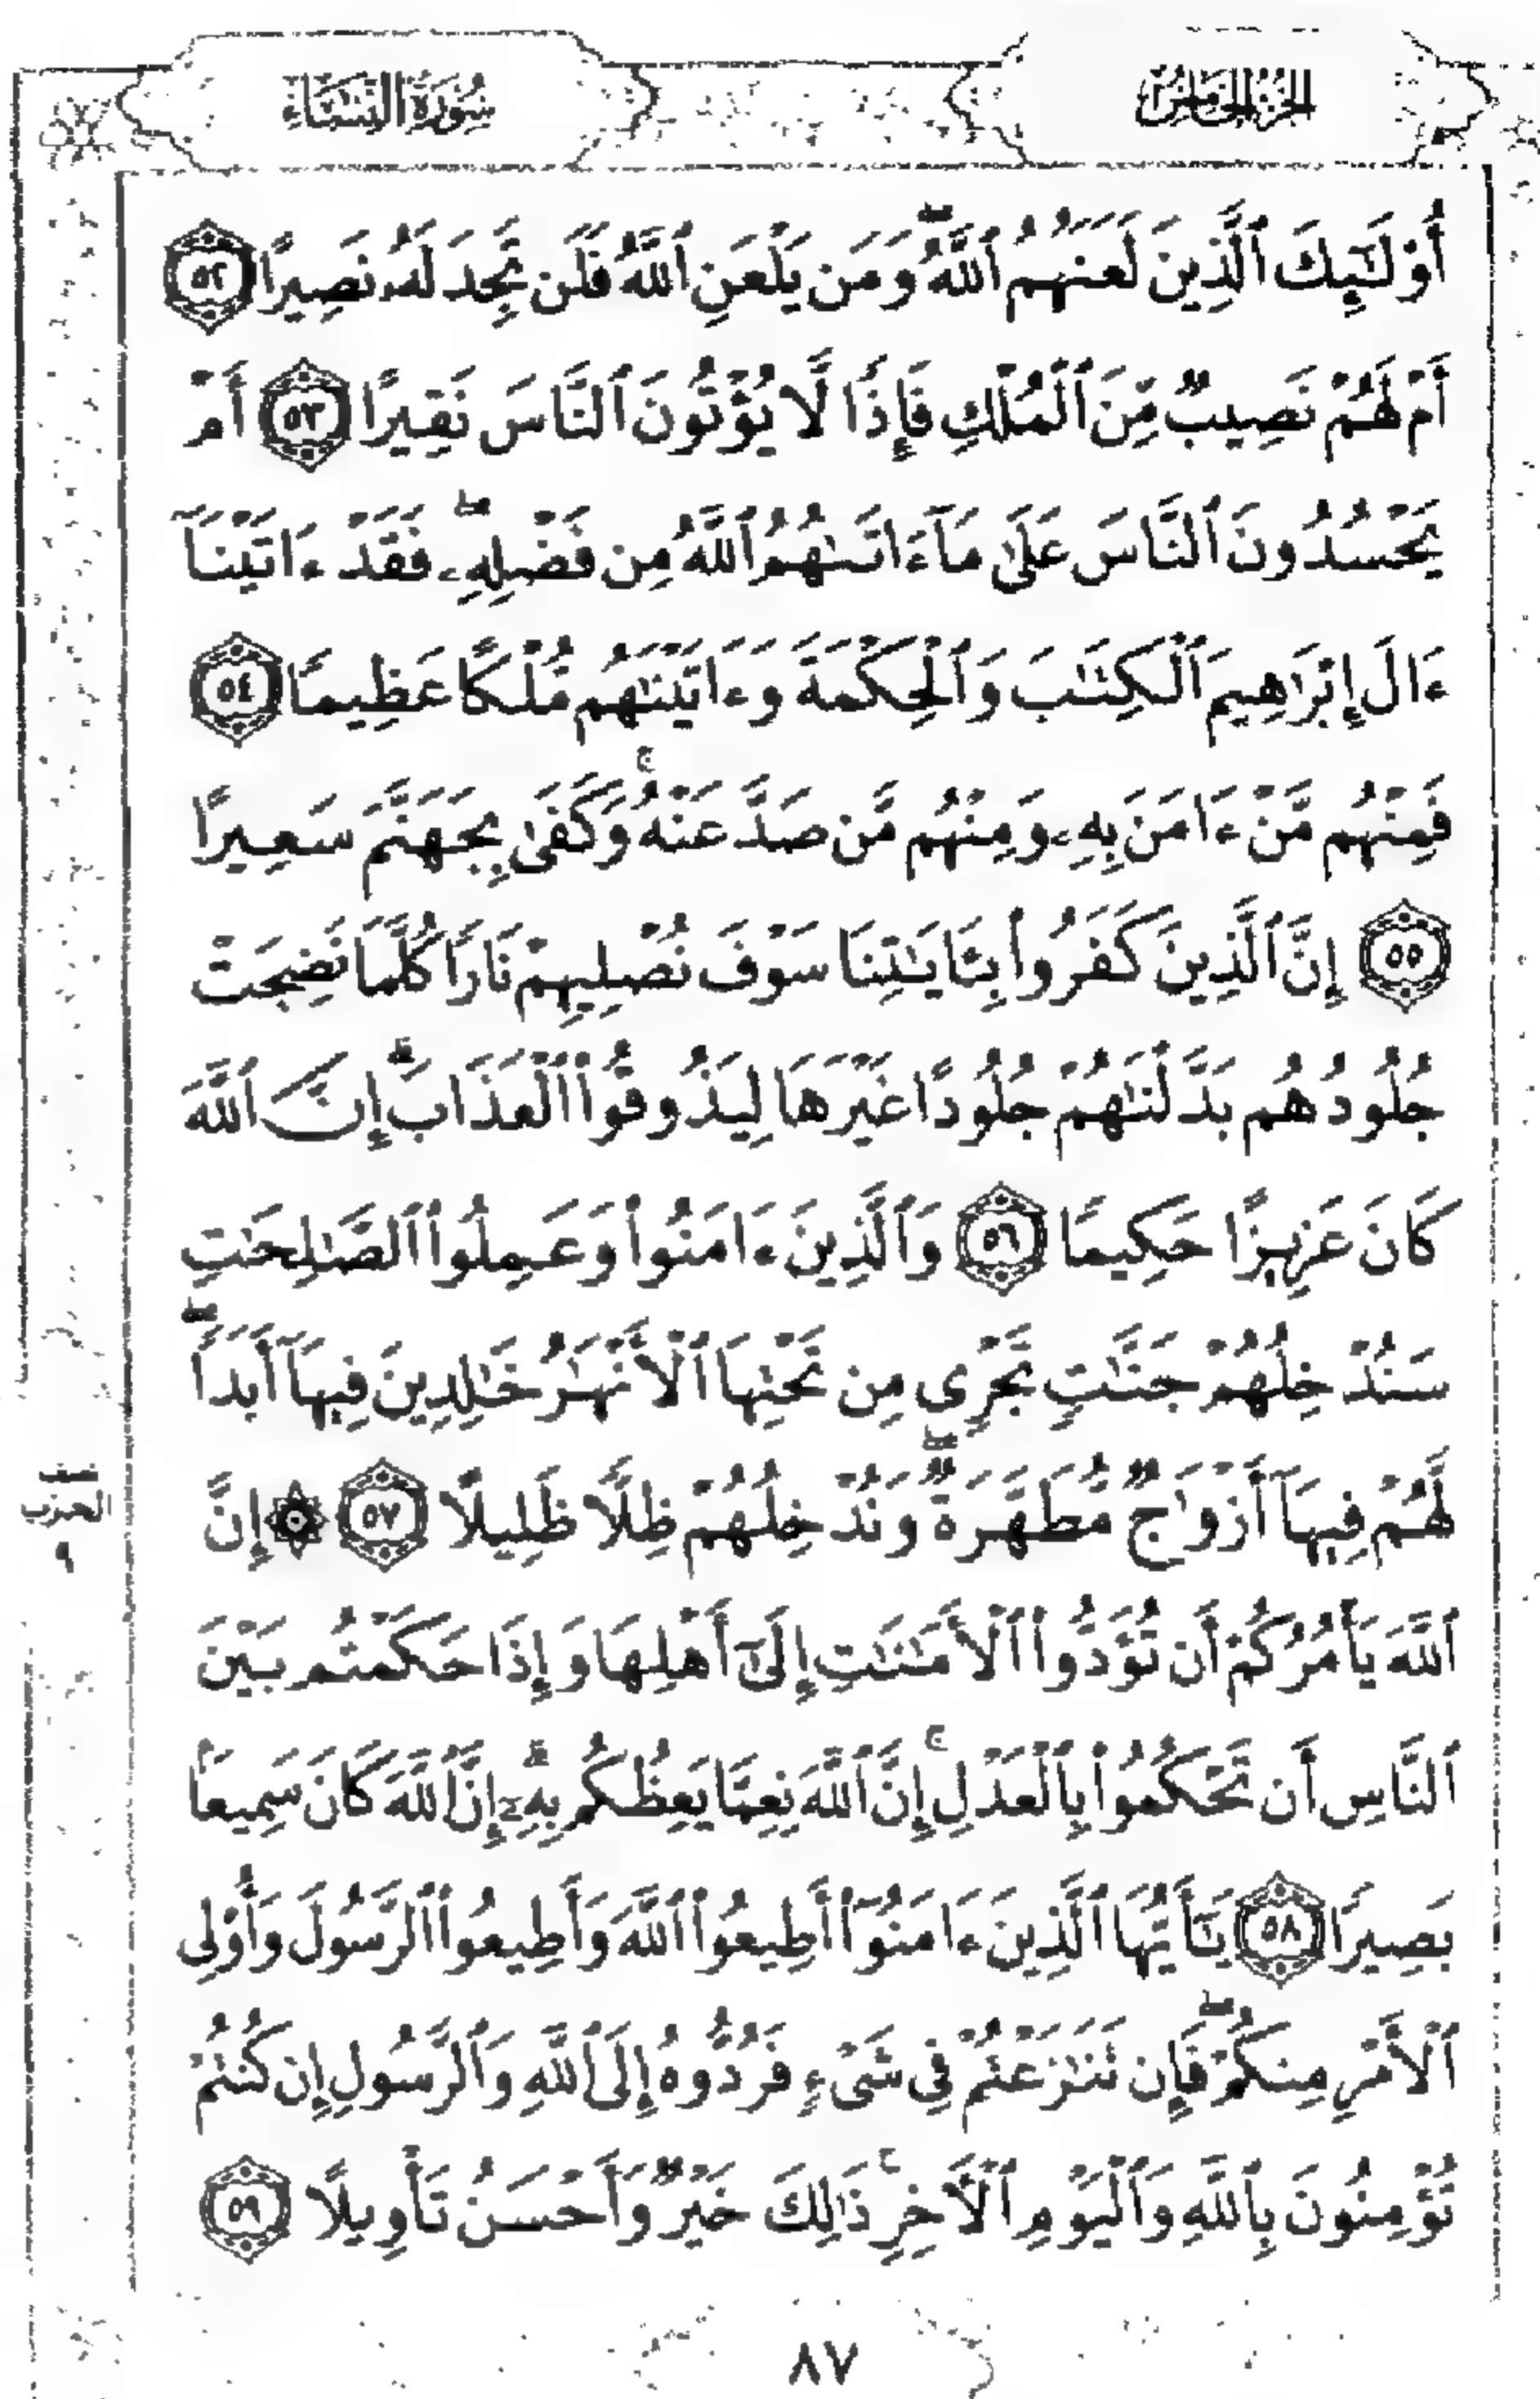 الجزء الخامس سورة النساء
أُوْلَٰٓئِكَ ٱلَّذِينَ لَعَنَهُمُ ٱللَّهُۖ وَمَن يَلْعَنِ ٱللَّهُ فَلَن تَجِدَ لَهُۥ نَصِيرًا ٥٢
أَمْ لَهُمْ نَصِيبٌ مِّنَ ٱلْمُلْكِ فَإِذًا لَّا يُؤْتُونَ ٱلنَّاسَ نَقِيرًا ٥٣ أَمْ
يَحْسُدُونَ ٱلنَّاسَ عَلَىٰ مَآ ءَاتَىٰهُمُ ٱللَّهُ مِن فَضْلِهِۦۖ فَقَدْ ءَاتَيْنَآ
ءَالَ إِبْرَٰهِيمَ ٱلْكِتَٰبَ وَٱلْحِكْمَةَ وَءَاتَيْنَٰهُم مُّلْكًا عَظِيمًا ٥٤
فَمِنْهُم مَّنْ ءَامَنَ بِهِۦ وَمِنْهُم مَّن صَدَّ عَنْهُۚ وَكَفَىٰ بِجَهَنَّمَ سَعِيرًا
٥٥ إِنَّ ٱلَّذِينَ كَفَرُوا۟ بِـَٔايَٰتِنَا سَوْفَ نُصْلِيهِمْ نَارًا كُلَّمَا نَضِجَتْ
جُلُودُهُم بَدَّلْنَٰهُمْ جُلُودًا غَيْرَهَا لِيَذُوقُوا۟ ٱلْعَذَابَۗ إِنَّ ٱللَّهَ
كَانَ عَزِيزًا حَكِيمًا ٥٦ وَٱلَّذِينَ ءَامَنُوا۟ وَعَمِلُوا۟ ٱلصَّٰلِحَٰتِ
سَنُدْخِلُهُمْ جَنَّٰتٍ تَجْرِى مِن تَحْتِهَا ٱلْأَنْهَٰرُ خَٰلِدِينَ فِيهَآ أَبَدًاۖ
لَّهُمْ فِيهَآ أَزْوَٰجٌ مُّطَهَّرَةٌۖ وَنُدْخِلُهُمْ ظِلًّا ظَلِيلًا ٥٧ ۞ إِنَّ
نصف
الحزب
٩
ٱللَّهَ يَأْمُرُكُمْ أَن تُؤَدُّوا۟ ٱلْأَمَٰنَٰتِ إِلَىٰٓ أَهْلِهَا وَإِذَا حَكَمْتُم بَيْنَ
ٱلنَّاسِ أَن تَحْكُمُوا۟ بِٱلْعَدْلِۚ إِنَّ ٱللَّهَ نِعِمَّا يَعِظُكُم بِهِۦٓۗ إِنَّ ٱللَّهَ كَانَ سَمِيعًۢا
بَصِيرًا ٥٨ يَٰٓأَيُّهَا ٱلَّذِينَ ءَامَنُوٓا۟ أَطِيعُوا۟ ٱللَّهَ وَأَطِيعُوا۟ ٱلرَّسُولَ وَأُوْلِى
ٱلْأَمْرِ مِنكُمْۖ فَإِن تَنَٰزَعْتُمْ فِى شَىْءٍ فَرُدُّوهُ إِلَى ٱللَّهِ وَٱلرَّسُولِ إِن كُنتُمْ
تُؤْمِنُونَ بِٱللَّهِ وَٱلْيَوْمِ ٱلْأَخِرِۚ ذَٰلِكَ خَيْرٌ وَأَحْسَنُ تَأْوِيلًا ٥٩
٨٧